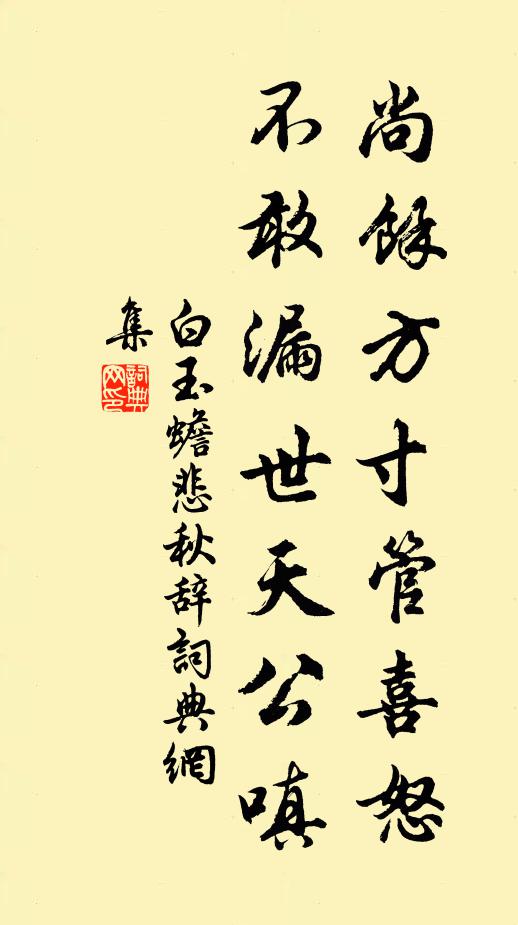 尚餘方寸管喜怒
不敢漏世天公嗔
白玉蟾悲秋辞詞典網
集
詞典网印